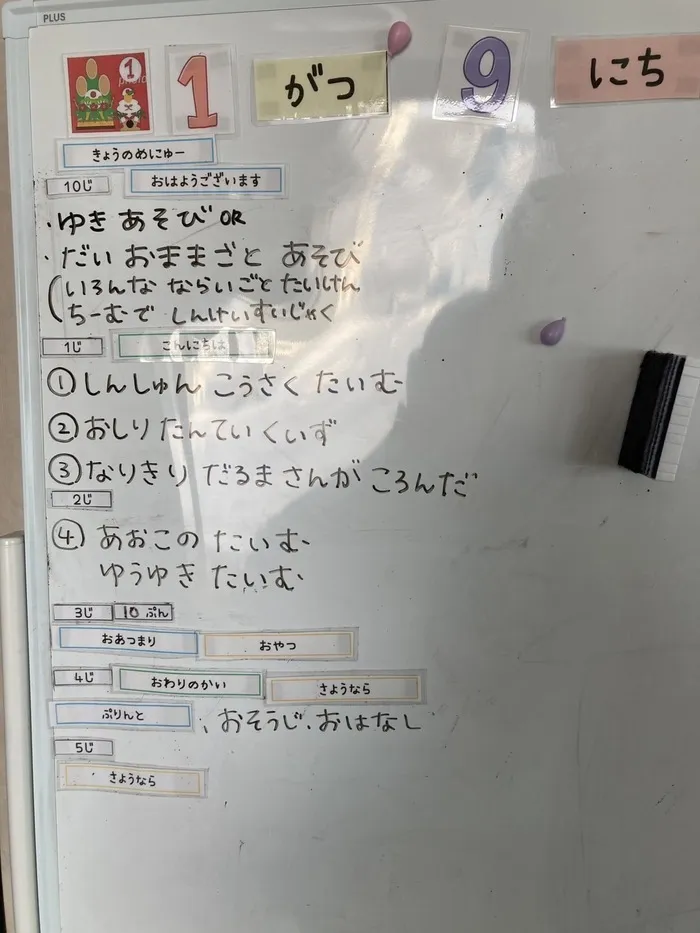 PLUS
1
1 がつ 9 にち
きょうのめにゅー
10じ おはようございます
・ゆき あそび OR
・だい おままごと あそび
(いろんな ならいごと たいけん
ちーむで しんけいすいじゃく
1じ こんにちは
①しんしゅん こうさく たいむ
②おしり たんてい くいず
③なりきり だるま さんが ころんだ
2じ
④ あおこの たいむ
ゆうゆき たいむ
3じ 10 ぷん
おあつまり おやつ
4じ おわりのかい さようなら
ぷりんと 、おそうじ、おはなし
5じ
さようなら